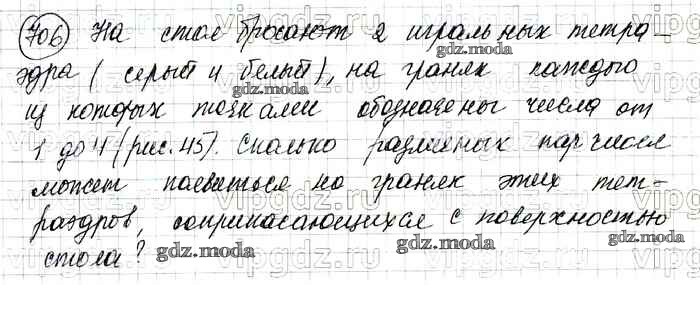 706 На стол бросают 2 игральных тетра-
эдра (серый и белый), на гранях каждого
из которых точками обозначены числа от
1 до 4 (рис. 45). Сколько различных пар чисел
может появиться на гранях этих тет-
раэдров, соприкасающихся с поверхностью
стола?
gdz.moda
gdz.moda
gdz.moda
gdz.moda
gdz.moda
gdz.moda
gdz.moda
vipgdz.ru
vipgdz.ru
vipgdz.ru